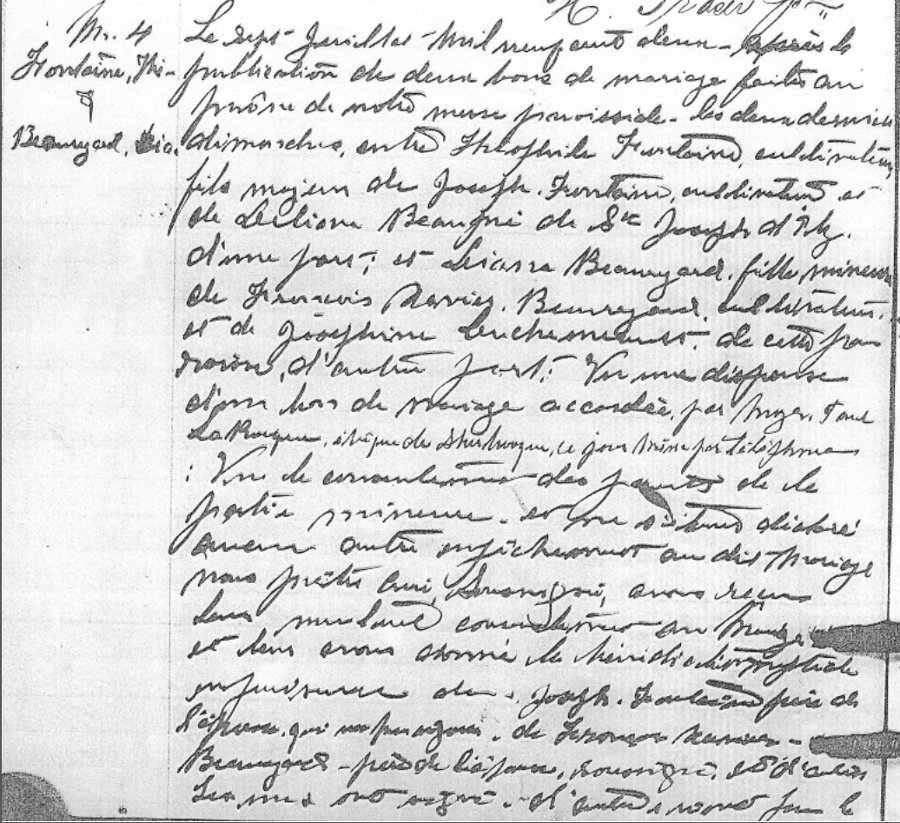 M. 4
Fontaine, Thé-
&
Beauregard, Léa.
Le sept juillet mil neuf cent deux - après la
publication de deux bans de mariage faite au
prône de notre messe paroissiale - les deux derniers
dimanches, entre Théophile Fontaine, cultivateur,
fils majeur de Joseph Fontaine, cultivateur et
de Beaugré de St Joseph d'Ely.
d'une part; et Beauregard, fille mineure
de François Xavier Beauregard, cultivateur,
et de Joséphine Duchesneau, de cette pa
roisse, d'autre part; Vu une dispense
d'un ban de mariage accordée, par Mgr. Paul
LaRocque, évêque de Sherbrooke, ce jour même par téléphone
; Vu le consentement des parents de la
partie mineure - et ne s'étant déclaré
aucun autre empêchement au dit mariage
nous prêtre curé, soussigné, avons reçu
leur mutuel consentement au mariage
et leur avons donné la bénédiction nuptiale
en présence de Joseph Fontaine père de
l'époux, qui - de François Xavier -
Beauregard - père de l'épouse, soussigné, et d'autres
ont signé. d'autres n'ont pu le